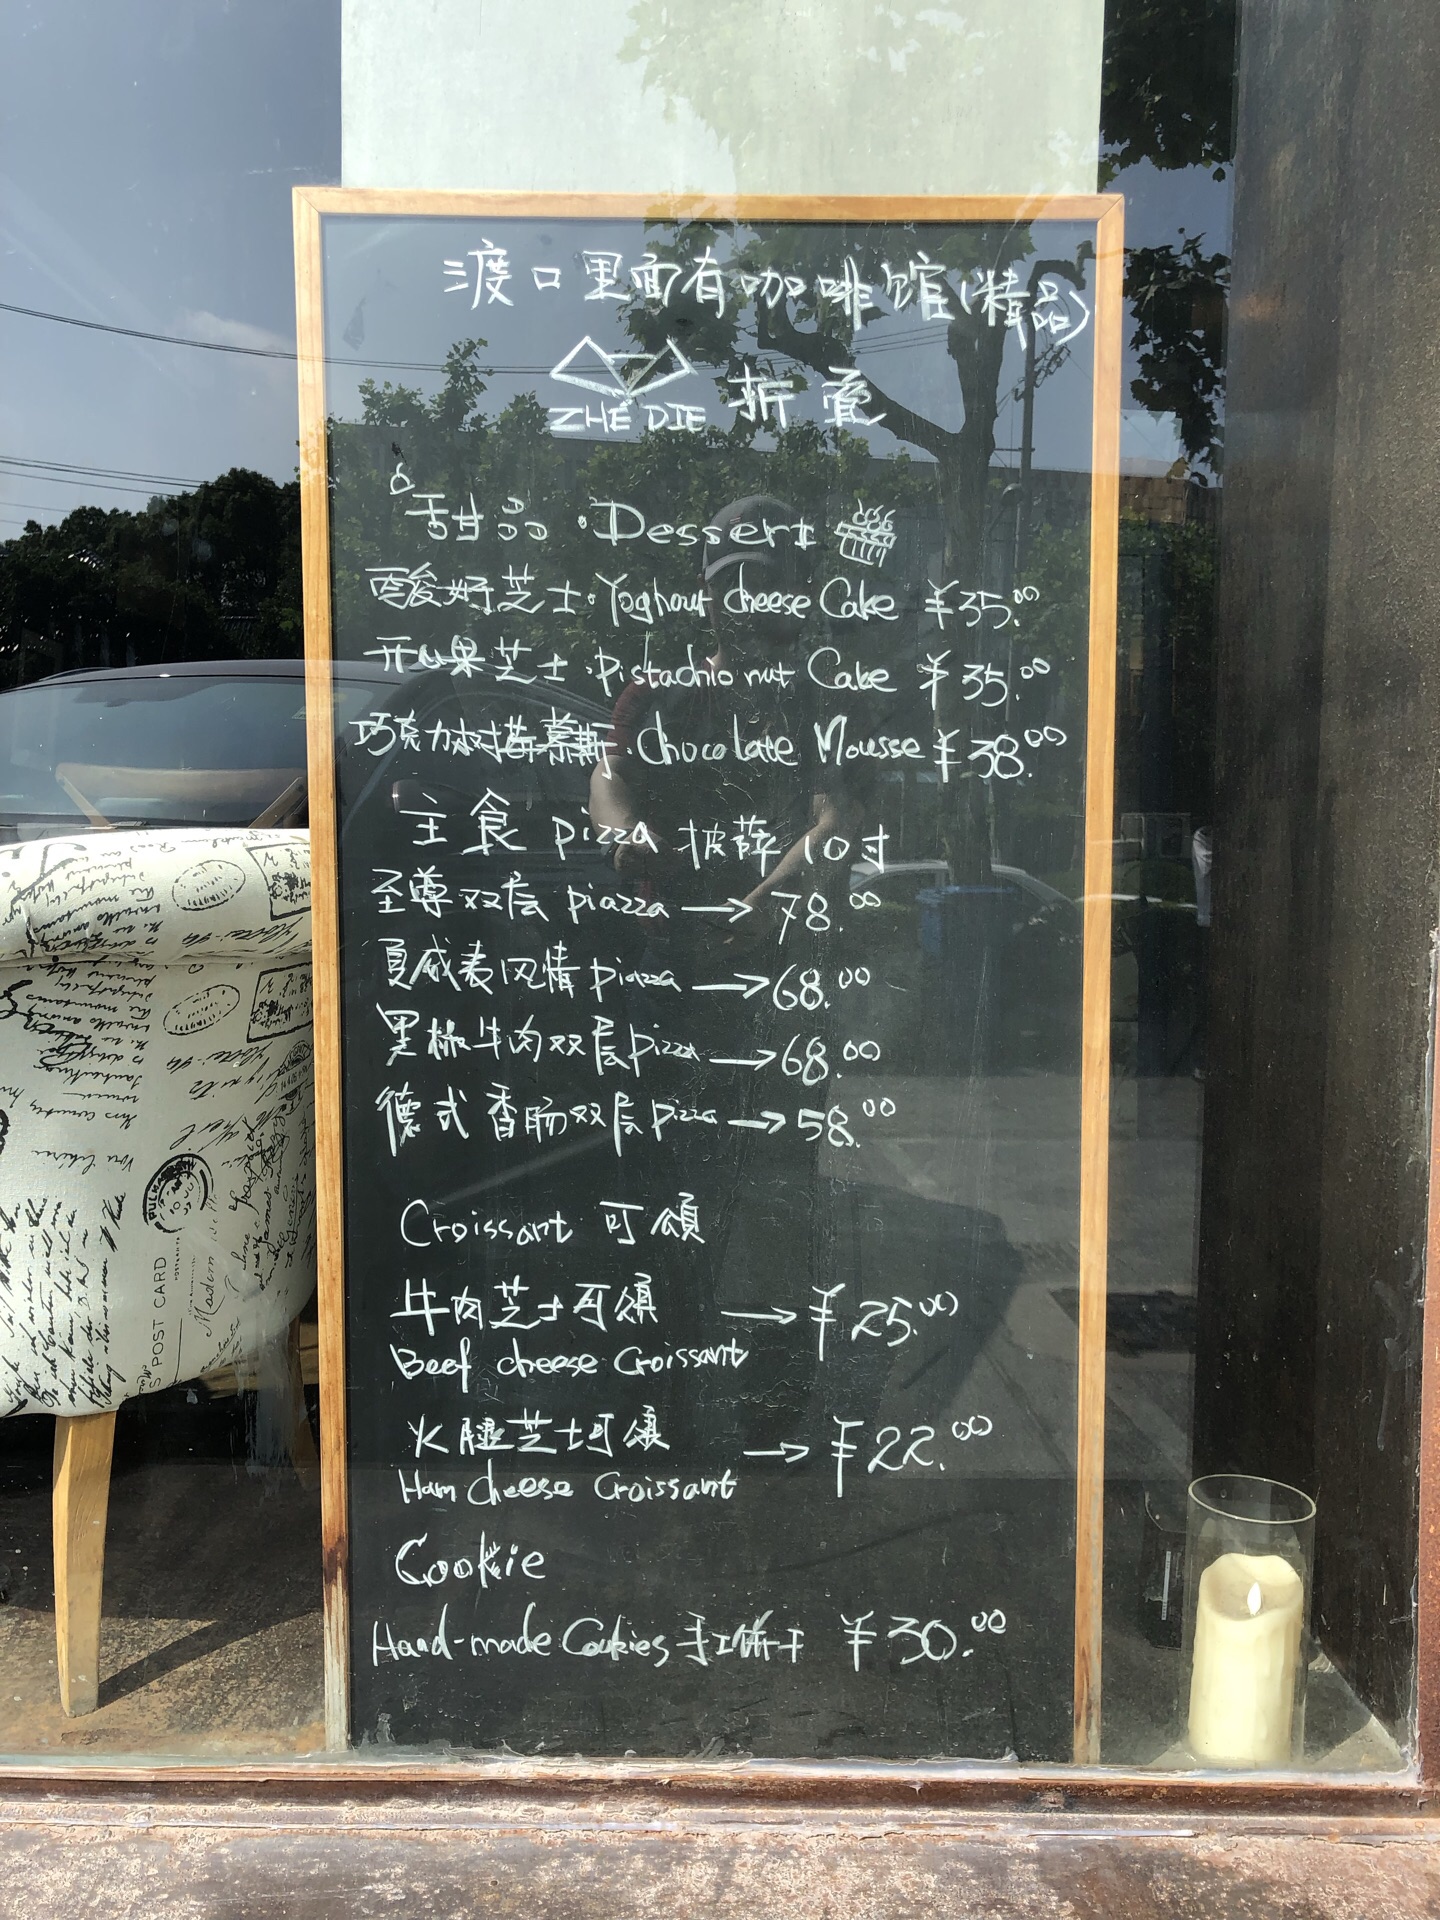 渡口里面有咖啡馆(精品)
ZHE DIE 折叠
甜品·Dessert
酸奶芝士·Yoghour cheese Cake ¥35.00
开心果芝士·Pistachio nut Cake ¥35.00
巧克力树莓慕斯·Chocolate Mousse ¥38.00
主食 pizza 披萨 10寸
至尊双层 piazza → 78.00
夏威夷风情 piazza → 68.00
黑椒牛肉双层pizza → 68.00
德式香肠双层pizza → 58.00
Croissant 可頌
牛肉芝士可頌 → ¥25.00
Beef cheese Croissant
火腿芝士可頌 → ¥22.00
Ham cheese Croissant
Cookie
Hand-made Cookies 手工饼干 ¥30.00
POST CARD